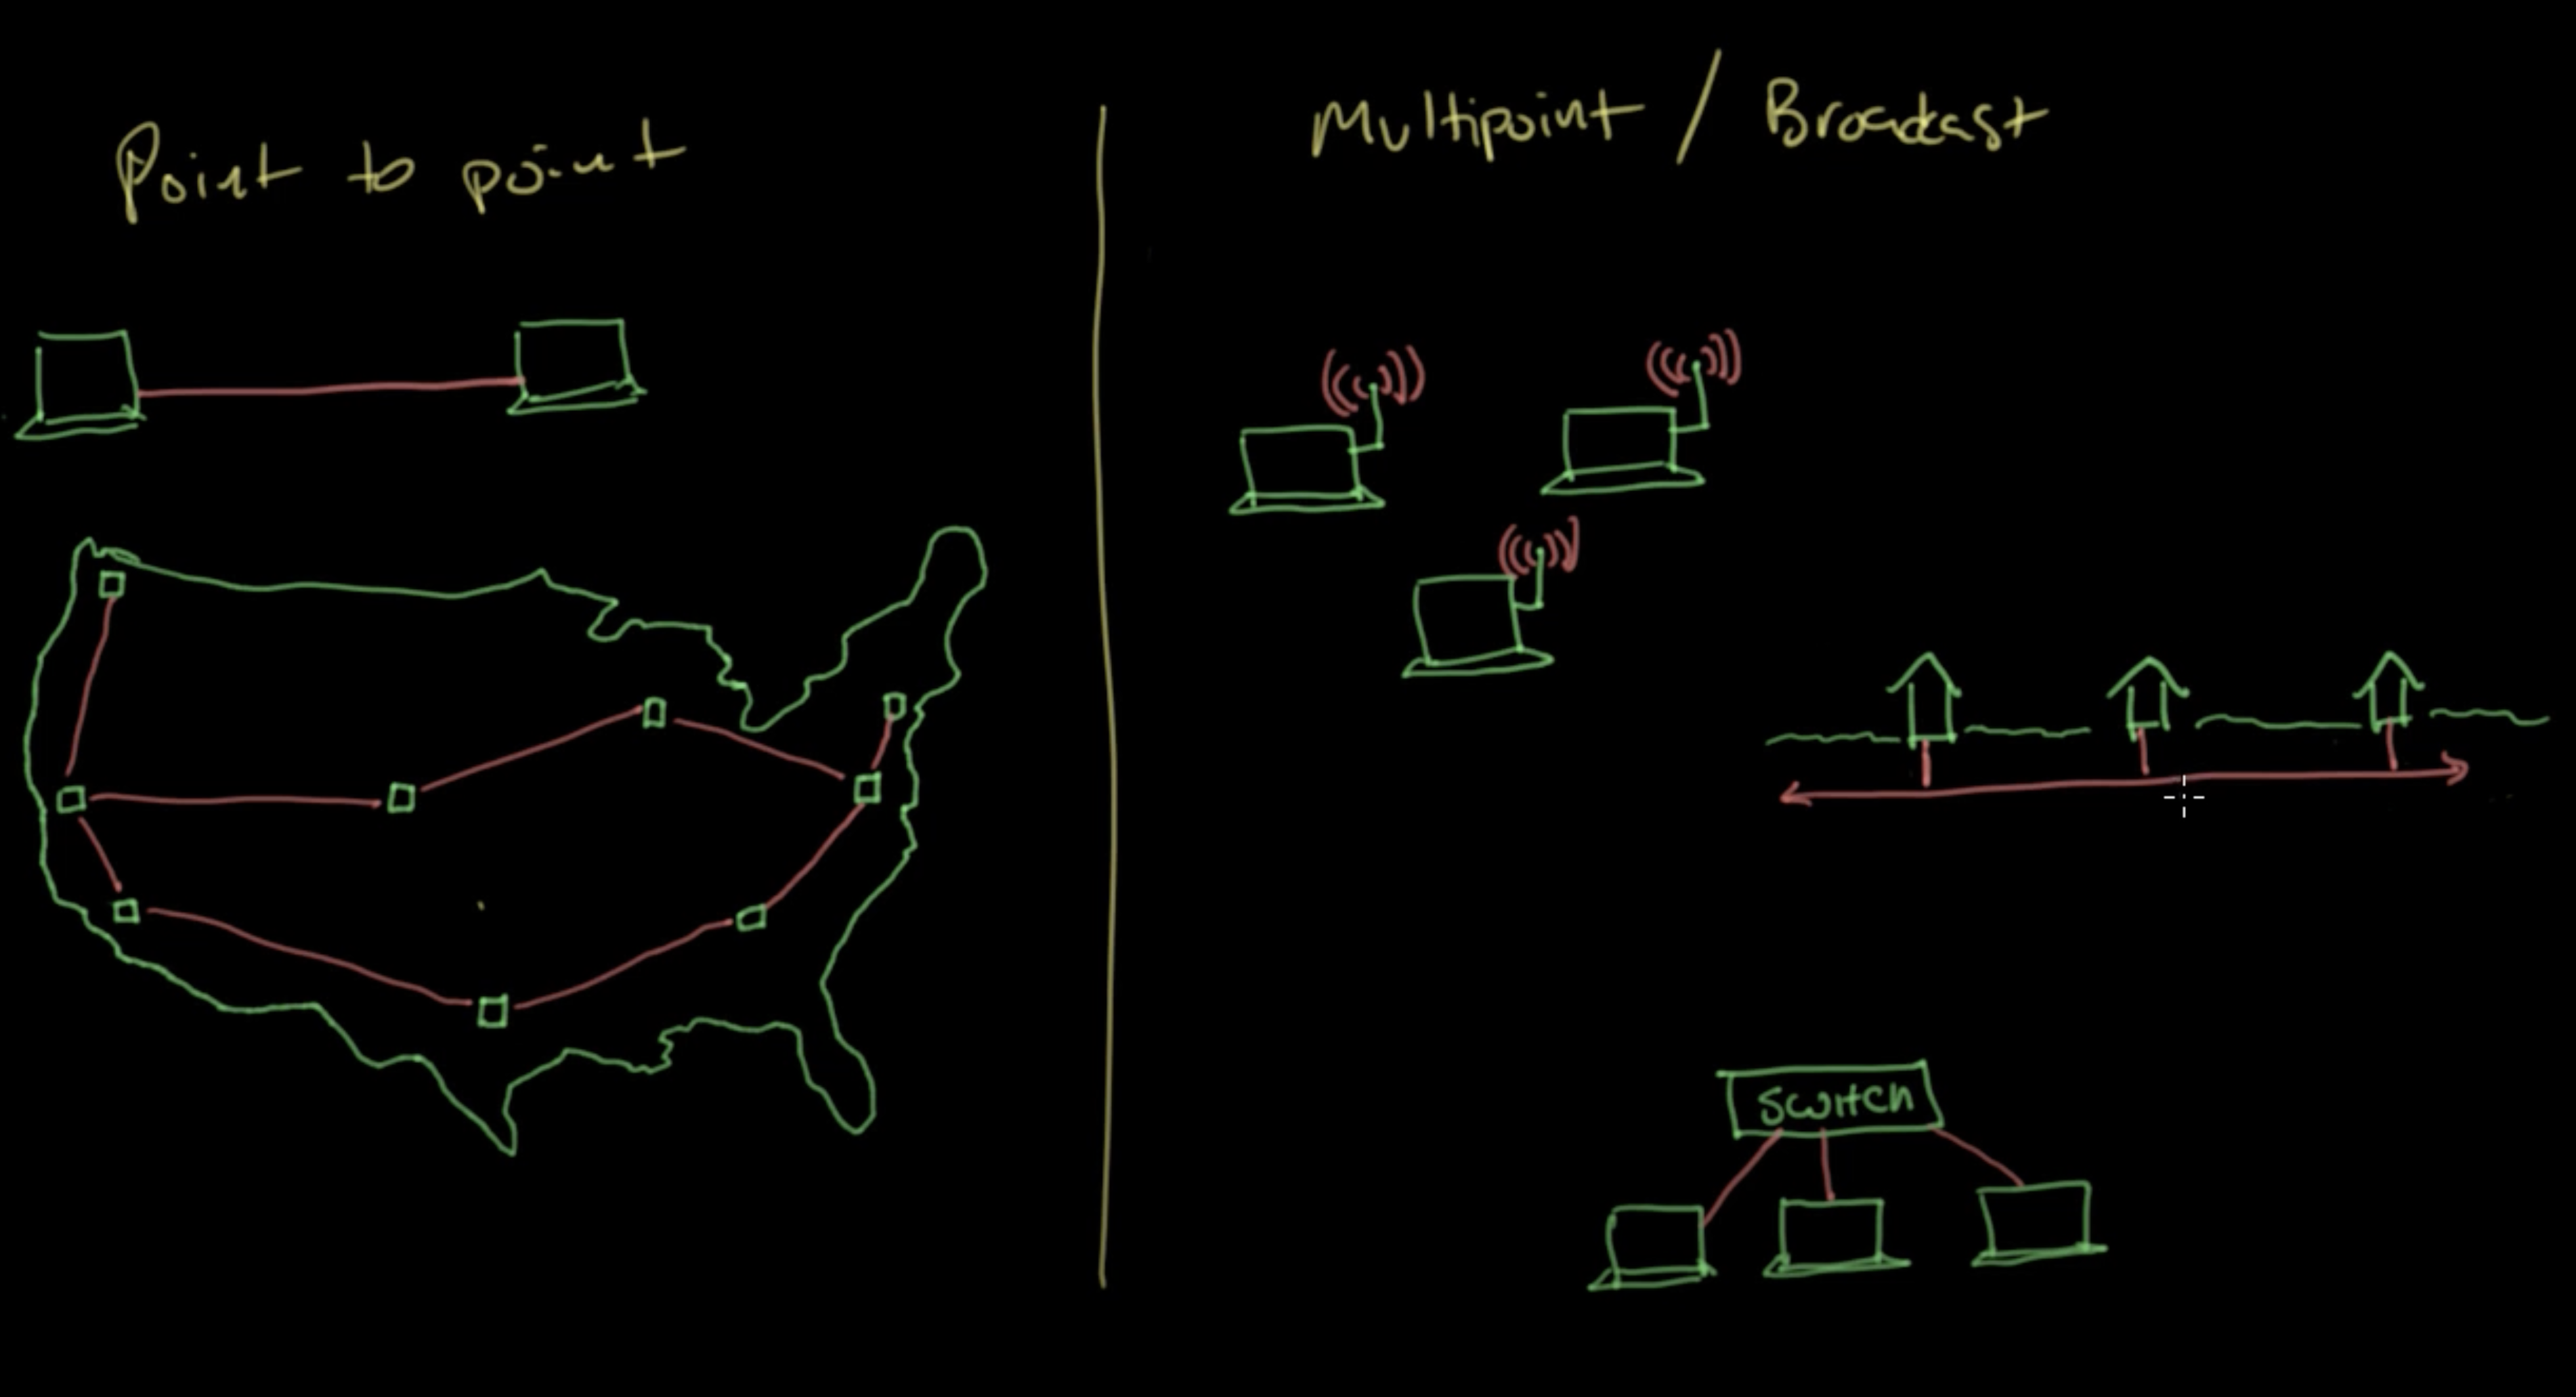 Point to point
Multipoint / Broadcast
Switch